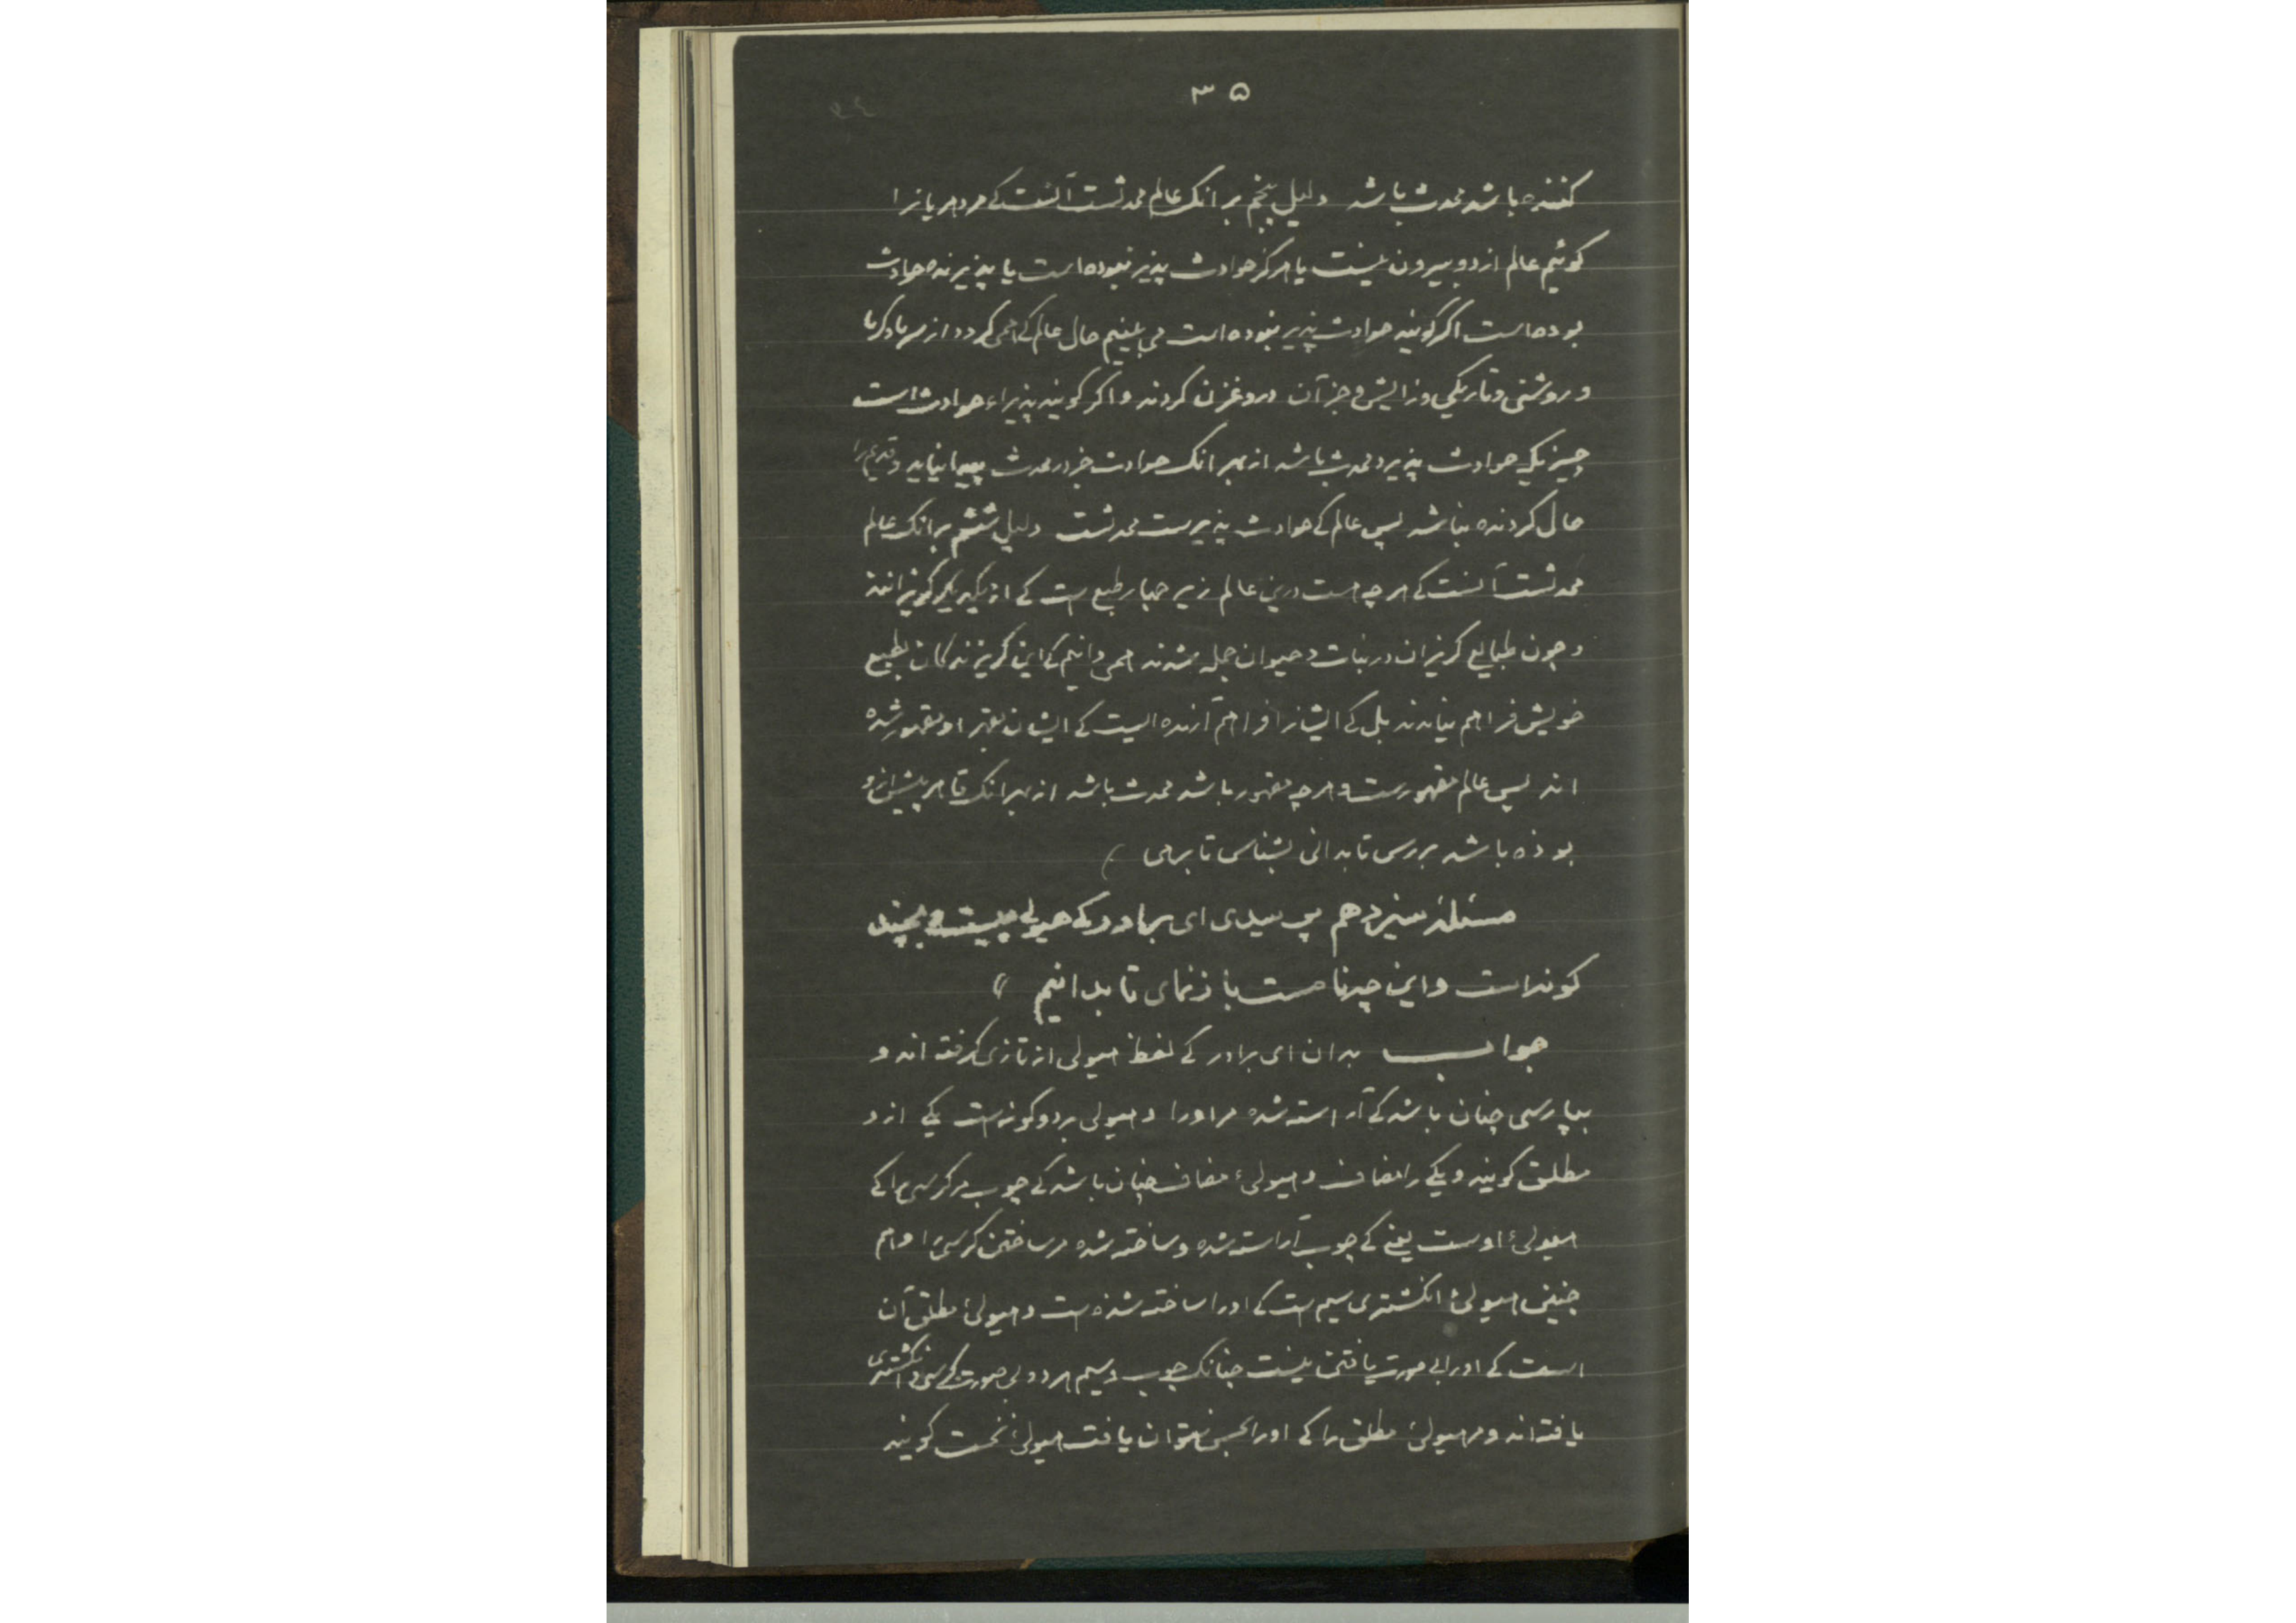 ۳۵
کننده باشد محدث باشد دلیل پنجم بر انک عالم محدثست آنست کے مر دهریانرا
کوئیم عالم از دو بیرون نیست یا هرکز حوادث پذیر نبوده است یا پذیرنده حوادث
بوده است اکر کویند حوادث پذیر نبوده است می بینیم حال عالم کے همی کردد از سرما و کرما
و روشنی و تاریکی و زایش و جز آن دروغزن کردند و اکر کویند پذیراء حوادث است
چیزیکه حوادث پذیرد محدث باشد از بهر انک حوادث جز در محدث پیدا نیاید و قدیم را
حال کردنده نباشد پس عالم کے حوادث پذیرست محدثست دلیل ششم بر انک عالم
محدثست آنست کے هر چه هست درین عالم زیر چهار طبع ست کے از یکدیکر کریزانند
و چون طبایع کریزان در نبات و حیوان جمله شدند همی دانیم کے این کریزندکان بطبع
خویش فراهم نیامدند بل کے ایشانرا فراهم آرنده ایست کے ایشان بقهر او مقهور شده
اند پس عالم مقهورست و هر چه مقهور باشد محدث باشد از بهر انک قاهر پیش ازو
بوذه باشد بررس تا بدانی بشناس تا برهی
مسئلهٔ سیزدهم پرسیدی ای برادر کے هیولی چیست و بچند
کونه است و این چه نامست باز نمای تا بدانیم
جواب بدان ای برادر کے لفظ هیولی از تازی کرفته اند و
بپارسی چنان باشد کے آراسته شده مر اورا و هیولی بر دو کونه ست یکے ازو
مطلق کویند و یکے را مضاف و هیولیٔ مضاف چنان باشد کے چوب مر کرسی را کے
هیولیٔ اوست یعنے کے چوب آراسته شده و ساخته شده مر ساختن کرسی را و هم
چنین هیولیٔ انکشتری سیم ست کے اورا ساخته شده ست و هیولیٔ مطلق آن
است کے اورا بی صورت یافتن نیست چنانک چوب و سیم هر دو بی صورت کرسی و انکشتری
یافته اند و مر هیولیٔ مطلق را کے اورا بحس نتوان یافت هیولیٔ نخست کویند